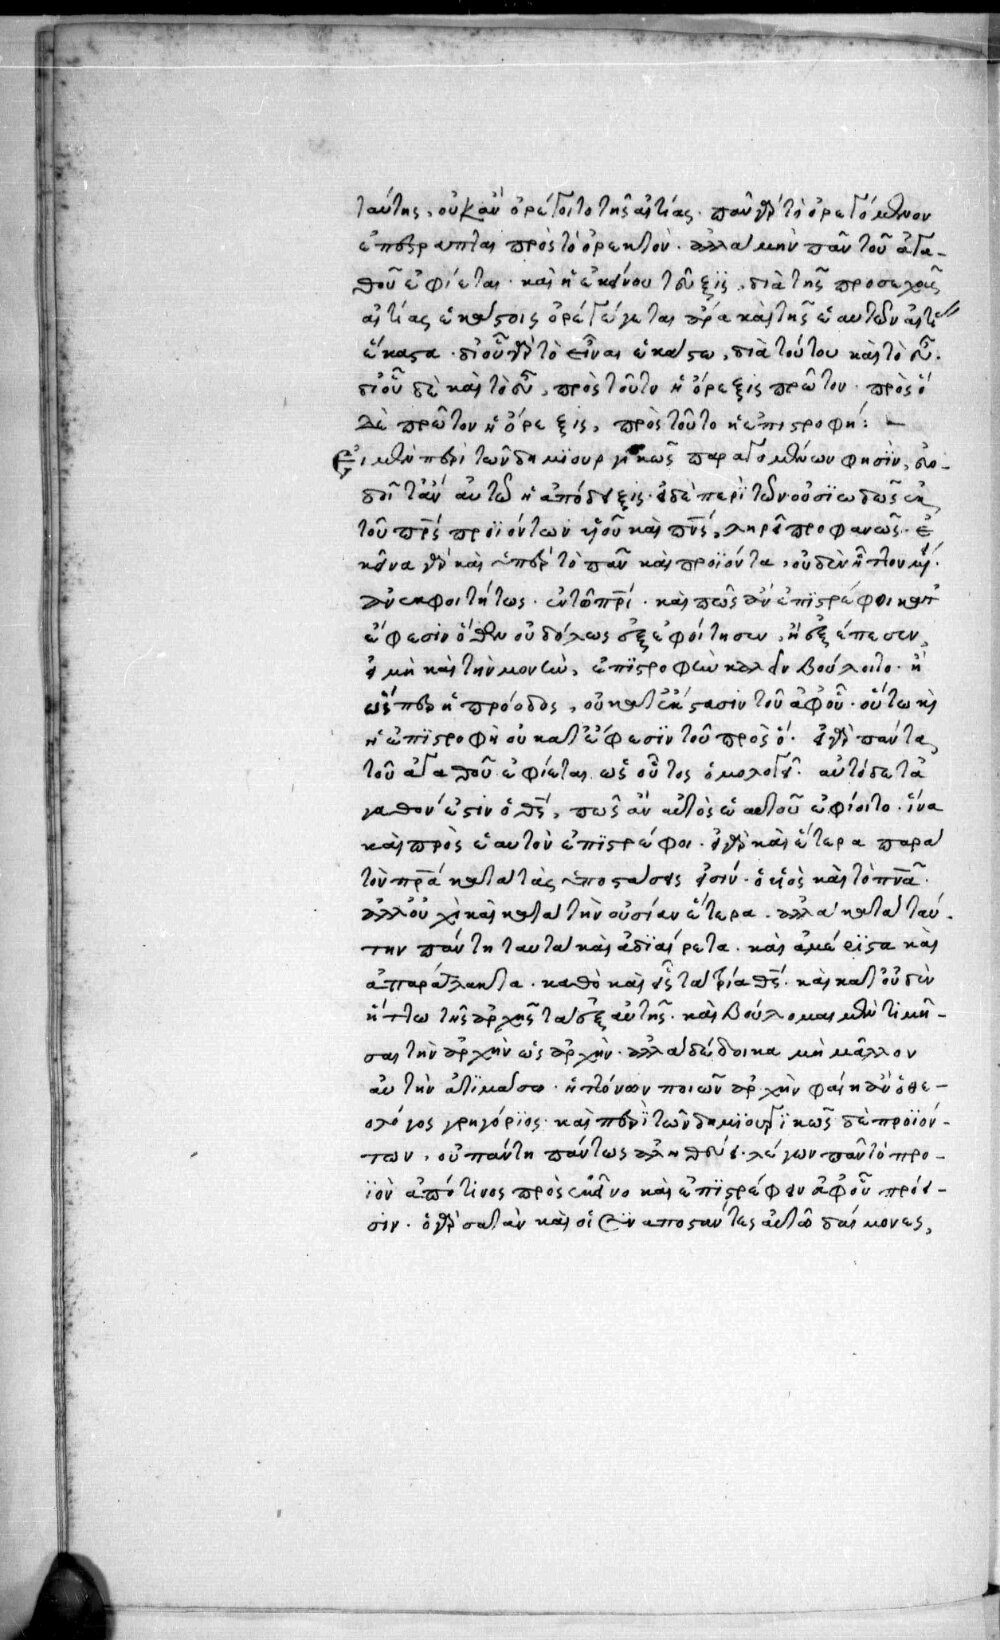 ταύτης, οὐκ ἂν ὀρέγοιτο τῆς αἰτίας. πᾶν γὰρ τὸ ὀρεγόμενον
ἐπέστραπται πρὸς τὸ ὀρεκτόν. ἀλλὰ μὴν πᾶν τοῦ ἀγα-
θοῦ ἐφίεται. καὶ ἡ ἐκείνου τεῦξις, διὰ τῆς προσεχοῦς
αἰτίας ἑκάστοις ὀρέγεται ἄρα καὶ τῆς ἑαυτῶν αἰτίας
ἕκαστα. δι' οὗ γὰρ τὸ εἶναι ἑκάστω, διὰ τούτου καὶ τὸ εὖ.
δι' οὗ δὲ καὶ τὸ εὖ, πρὸς τοῦτο ἡ ὄρεξις πρῶτον. πρὸς ὃ
δὲ πρῶτον ἡ ὄρεξις, πρὸς τοῦτο ἡ ἐπιστροφή: –
Εἰ μὲν περὶ τῶν δημϊουργικῶς παραγομένων φησὶν,
αὐτῶ ἡ ἀπόδειξις. εἰ δὲ περὶ τῶν οὐσϊωδῶς ἐκ
τοῦ πρς προϊόντων υἱοῦ καὶ πνς, ληρεῖ προφανῶς. ἐ
κεῖνα γὰρ καὶ ὑπὲρ τὸ πᾶν καὶ προϊόντα, οὐδὲν ἧττον μέ.
ἀνεκφοιτήτως. ἐν τῶ πρί. καὶ πῶς ἂν ἐπϊστρέφοι κατ'
ἔφεσιν ὅθεν οὐδόλως ἐξεφοίτησεν, ἢ ἐξέπεσεν,
εἰ μὴ καὶ τὴν μονὴν, ἐπϊστροφὴν καλεῖν βούλοιτο. ἢ
ὥσπερ ἡ πρόοδος, οὐ κατ' ἔκστασιν τοῦ ἀφ' οὗ. οὕτω καὶ
ἡ ἐπϊστροφὴ οὐ κατ' ἔφεσϊν τοῦ πρὸς ὅ. εἰ γὰρ πάντα,
τοῦ ἀγαθοῦ ἐφίεται ὡς οὗτος ὁμολογεῖ. αὐτὸ δὲ τἀ
γαθόν ἐστιν ὁ θς, πῶς ἂν αὐτὸς ἑαυτοῦ ἐφίοιτο. ἵνα
καὶ πρὸς ἑαυτὸν ἐπϊστρέφοι. εἰ γὰρ καὶ ἕτερα παρὰ
τὸν πρα κατὰ τὰς ὑποστάσεις εἰσίν. ὁ υἱὸς καὶ τὸ πνα.
ἀλλ' οὐχὶ καὶ κατὰ τὴν οὐσίαν ἕτερα. ἀλλὰ κατὰ ταύ-
την πάντη ταυτὰ καὶ ἀδϊαίρετα. καὶ ἀμέρϊστα καὶ
ἀπαράλλακτα. καθὸ καὶ εἷς τὰ τρία θς. καὶ κατ' οὐδὲν
ἥττω τῆς ἀρχῆς τὰ ἐξ αὐτῆς. καὶ βούλομαι μὲν τιμῆ-
σαι τὴν ἀρχὴν ὡς ἀρχὴν. ἀλλὰ δέδοικα μὴ μᾶλλον
αὐτὴν ἀτϊμάσω. ἡττόνων ποιῶν ἀρχὴν φαίη ἂν ὁ θε-
ολόγος γρηγόρϊος. καὶ περὶ τῶν δημϊουργϊκῶς δὲ προϊόν-
των, οὐ πάντη πάντως ἀληθεύει. λέγων πᾶν τὸ προ-
ϊὸν ἀπό τινος πρὸς ἐκεῖνο καὶ ἐπϊστρέφειν ἀφ' οὗ πρόει-
σιν. ὁ γὰρ σατὰν καὶ οἱ συναποστάντες αὐτῶ δαίμονες,